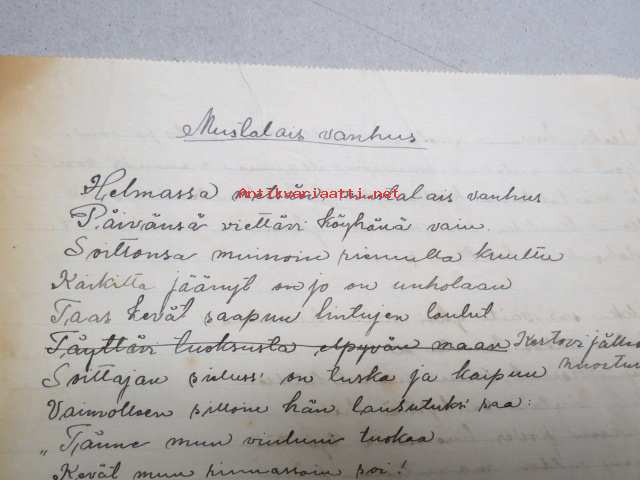 Mustalais vanhus
Helmassa metsän mustalais vanhus
Antikvariaatti.net
Päivänsä viettävi köyhänä vain.
Soittonsa muinoin riemulta kuului
Kaikilta jäänyt on jo on unholaan
Taas kevät saapuu lintujen laulut
Täyttävi tuoksusta elpyvän maan Kertovi jälleen
Soittajan sielussi on tuska ja kaipuu
Vaimolleen silloin hän lausutuksi saa:
„Tänne mun viuluni tuokaa
Kevät mun rinnassain soi!